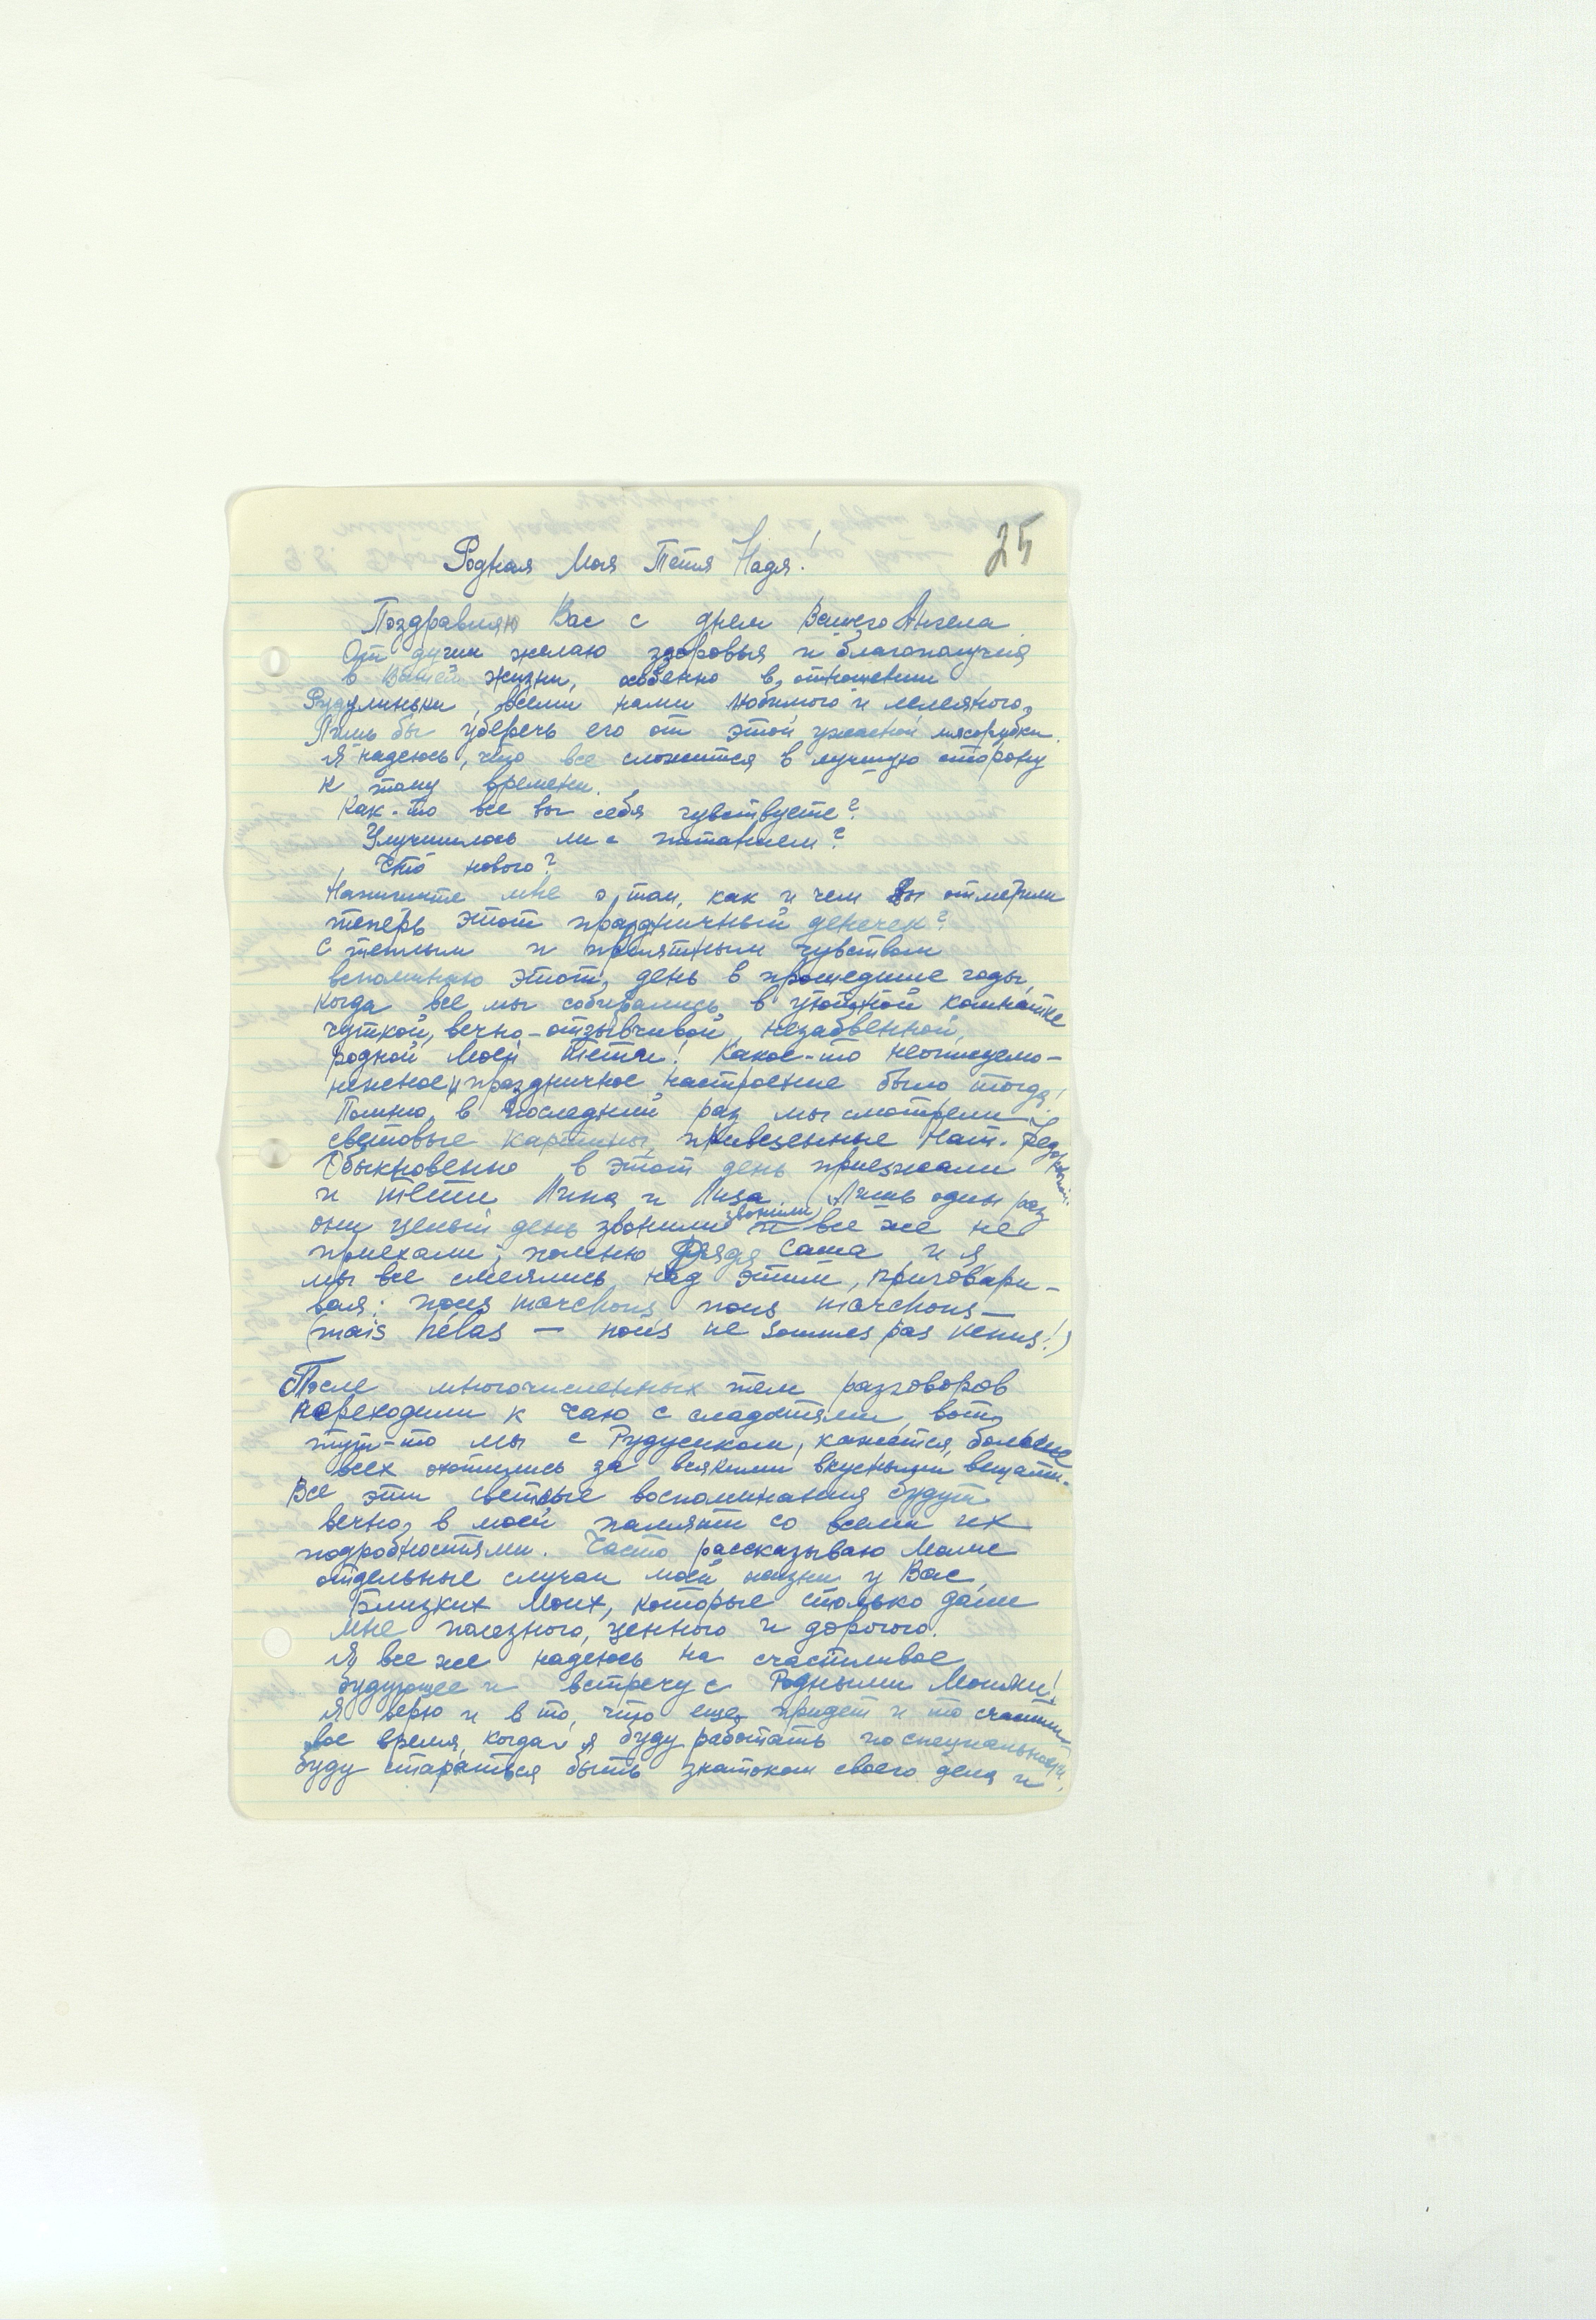 25
Родная Моя Тетя Надя!
Поздравляю Вас с днем Вашего Ангела.
От души желаю здоровья и благополучия
в Вашей жизни, особенно в отношении
Рудулиньки, всеми нами любимого и лелеяного,
Лишь бы уберечь его от этой ужасной мясорубки.
Я надеюсь, что все сложится в лучшую сторону
к тому времени.
Как-то все вы себя чувствуете?
Улучшилось ли с питанием?
Что нового?
Напишите мне о том, как и чем Вы отметили
теперь этот праздничный денечек?
С теплым и приятным чувством
вспоминаю этот день в прошедшие годы,
когда все мы собирались в уютной комнатке
чуткой, вечно-отзывчивой, незабвенной,
родной Моей тети! Какое-то неописуемо-
нежное и праздничное настроение было тогда!
Помню, в последний раз мы смотрели
световые картины, привезенные Нат. Федоровной.
Обыкновенно в этот день приезжали
и тети Лина и Лиза. (Лишь один раз
они целый день звонили, звонили и все же не
приехали; помню Дядя Саша и я
мы все смеялись над этим, приговари-
вая: nous marchons nous marchons —
(mais hélas — nous ne sommes pas venus!)
После многочисленных тем разговоров
переходили к чаю с сладостями, вот,
тут-то мы с Рудусиком, кажется, больше
всех охотились за всякими вкусными вещами.
Все эти светлые воспоминания будут
вечно в моей памяти со всеми их
подробностями. Часто рассказываю Маме
отдельные случаи моей жизни у Вас,
Близких Моих, которые столько дали
мне полезного, ценного и дорогого.
Я все же надеюсь на счастливое
будующее и встречу с Родными Моими!
Я верю и в то, что еще придет и то счастли-
вое время, когда я буду работать по специальности,
буду стараться быть знатоком своего дела и